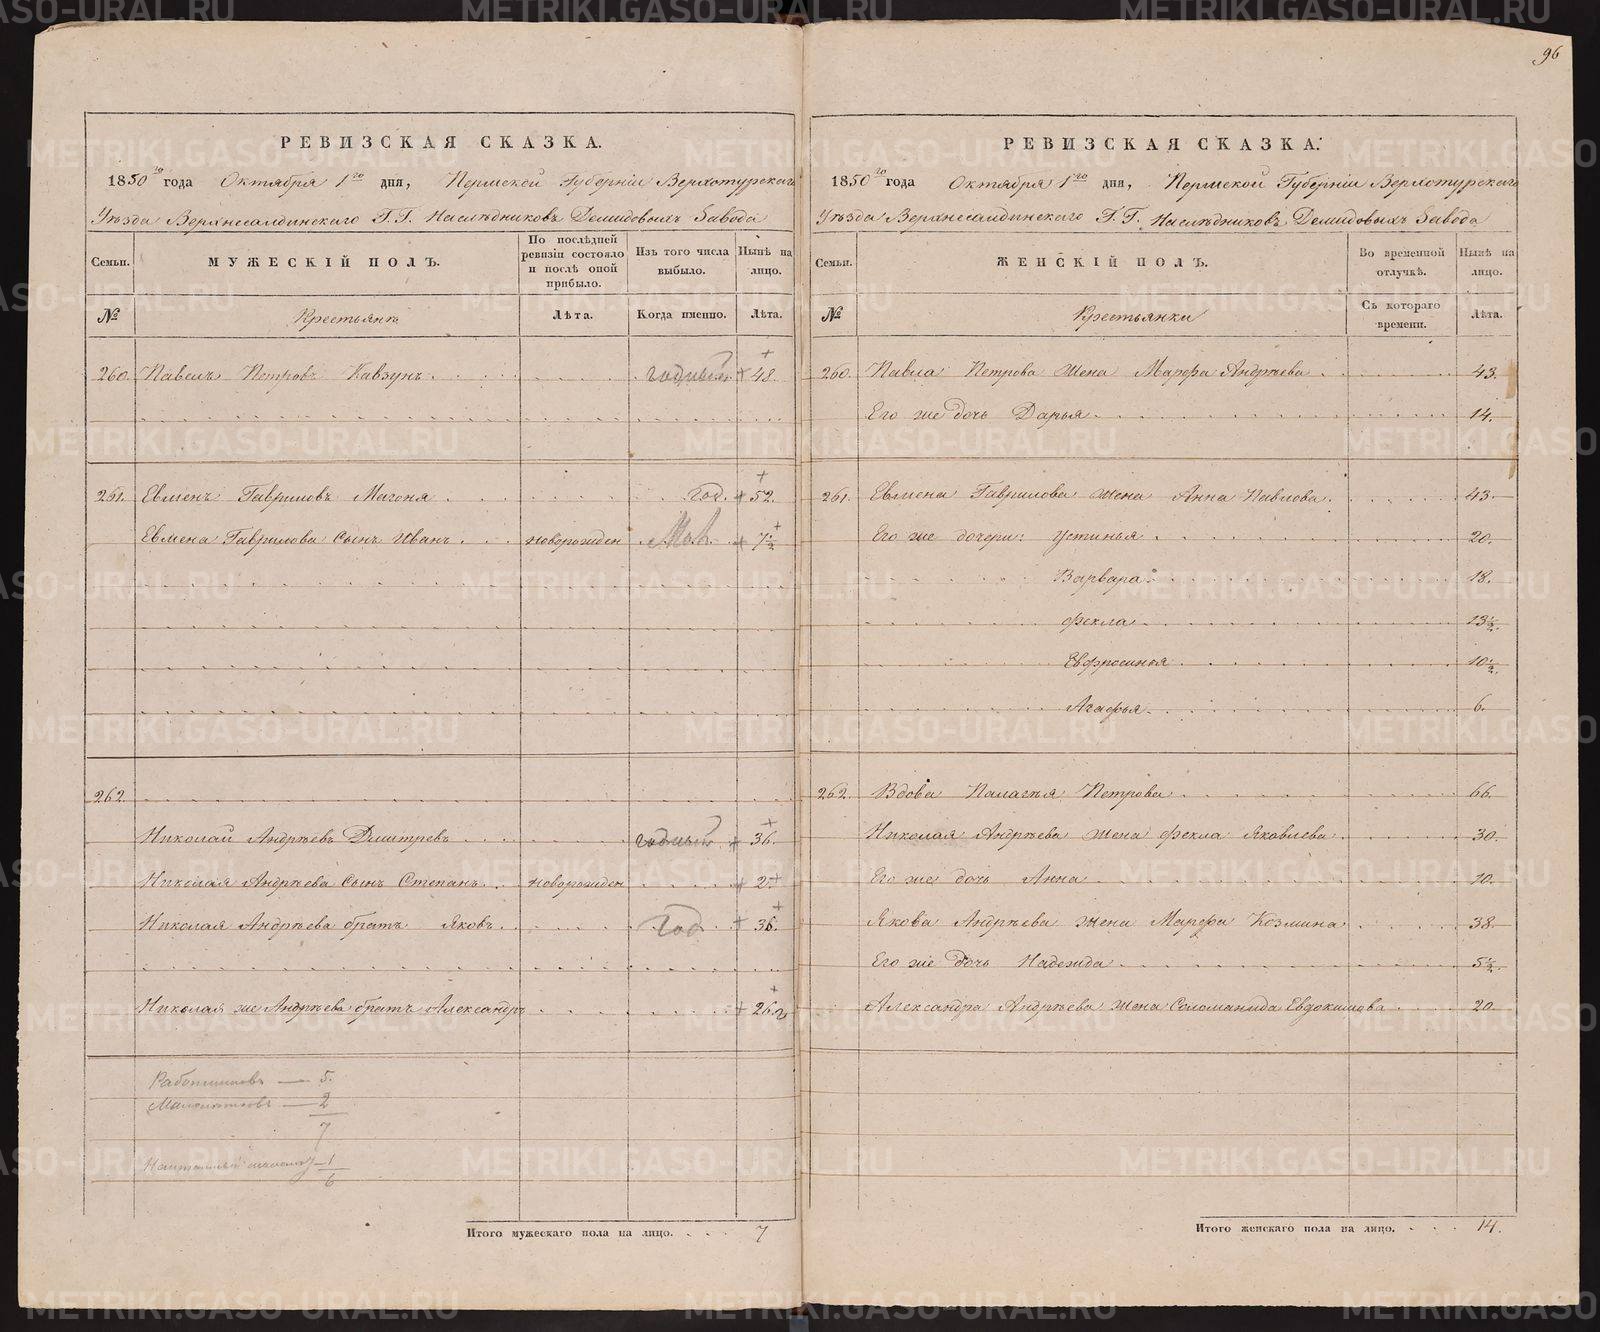 96
РЕВИЗСКАЯ СКАЗКА.
1850 го года Октября 1го дня, Пермской Губерніи Верхотурскаго
Уѣзда Верхнесалдинскаго Г.Г. Наслѣдниковъ Демидовыхъ Завода
Семьи.
МУЖЕСКІЙ ПОЛЪ.
По послѣдней ревизіи состояло и послѣ оной прибыло.
Изъ того числа выбыло.
Нынѣ на лицо.
№ Крестьянъ Лѣта. Когда именно. Лѣта.
260. Павелъ Петровъ Кавзунъ годный + 48.
261. Евменъ Гавриловъ Магоня год. + 52.
Евмена Гаврилова сынъ Иванъ новорожден Мал. + 7½
262.
Николай Андрѣевъ Дмитревъ годный + 36.
Николая Андрѣева сынъ Степанъ новорожден + 2 +
Николая Андрѣева братъ Яковъ Год + 36.
Николая же Андрѣева братъ Александръ + 26.
Работниковъ — 5.
Малолѣтковъ — 2
7
1
6
Итого мужескаго пола на лицо. 7
РЕВИЗСКАЯ СКАЗКА.
1850 го года Октября 1го дня, Пермской Губерніи Верхотурскаго
Уѣзда Верхнесалдинскаго Г.Г. Наслѣдниковъ Демидовыхъ Завода
Семьи.
ЖЕНСКІЙ ПОЛЪ.
Во временной отлучкѣ.
Нынѣ на лицо.
№ Крестьянки Съ котораго времени. Лѣта.
260. Павла Петрова жена Марфа Андрѣева 43.
Его же дочь Дарья 14.
261. Евмена Гаврилова жена Анна Павлова. 43.
Его же дочери: Устинья 20.
Варвара 18.
Фекла 13½.
Евфросинья 10½.
Агафья 6.
262. Вдова Палагѣя Петрова 66.
Николая Андрѣева жена Фекла Яковлева 30.
Его же дочь Анна 10.
Якова Андрѣева жена Марфа Козмина 38.
Его же дочь Надежда 5½.
Александра Андрѣева жена Соломанида Евдокимова 20
Итого женскаго пола на лицо. 14.
METRIKI.GASO-URAL.RU